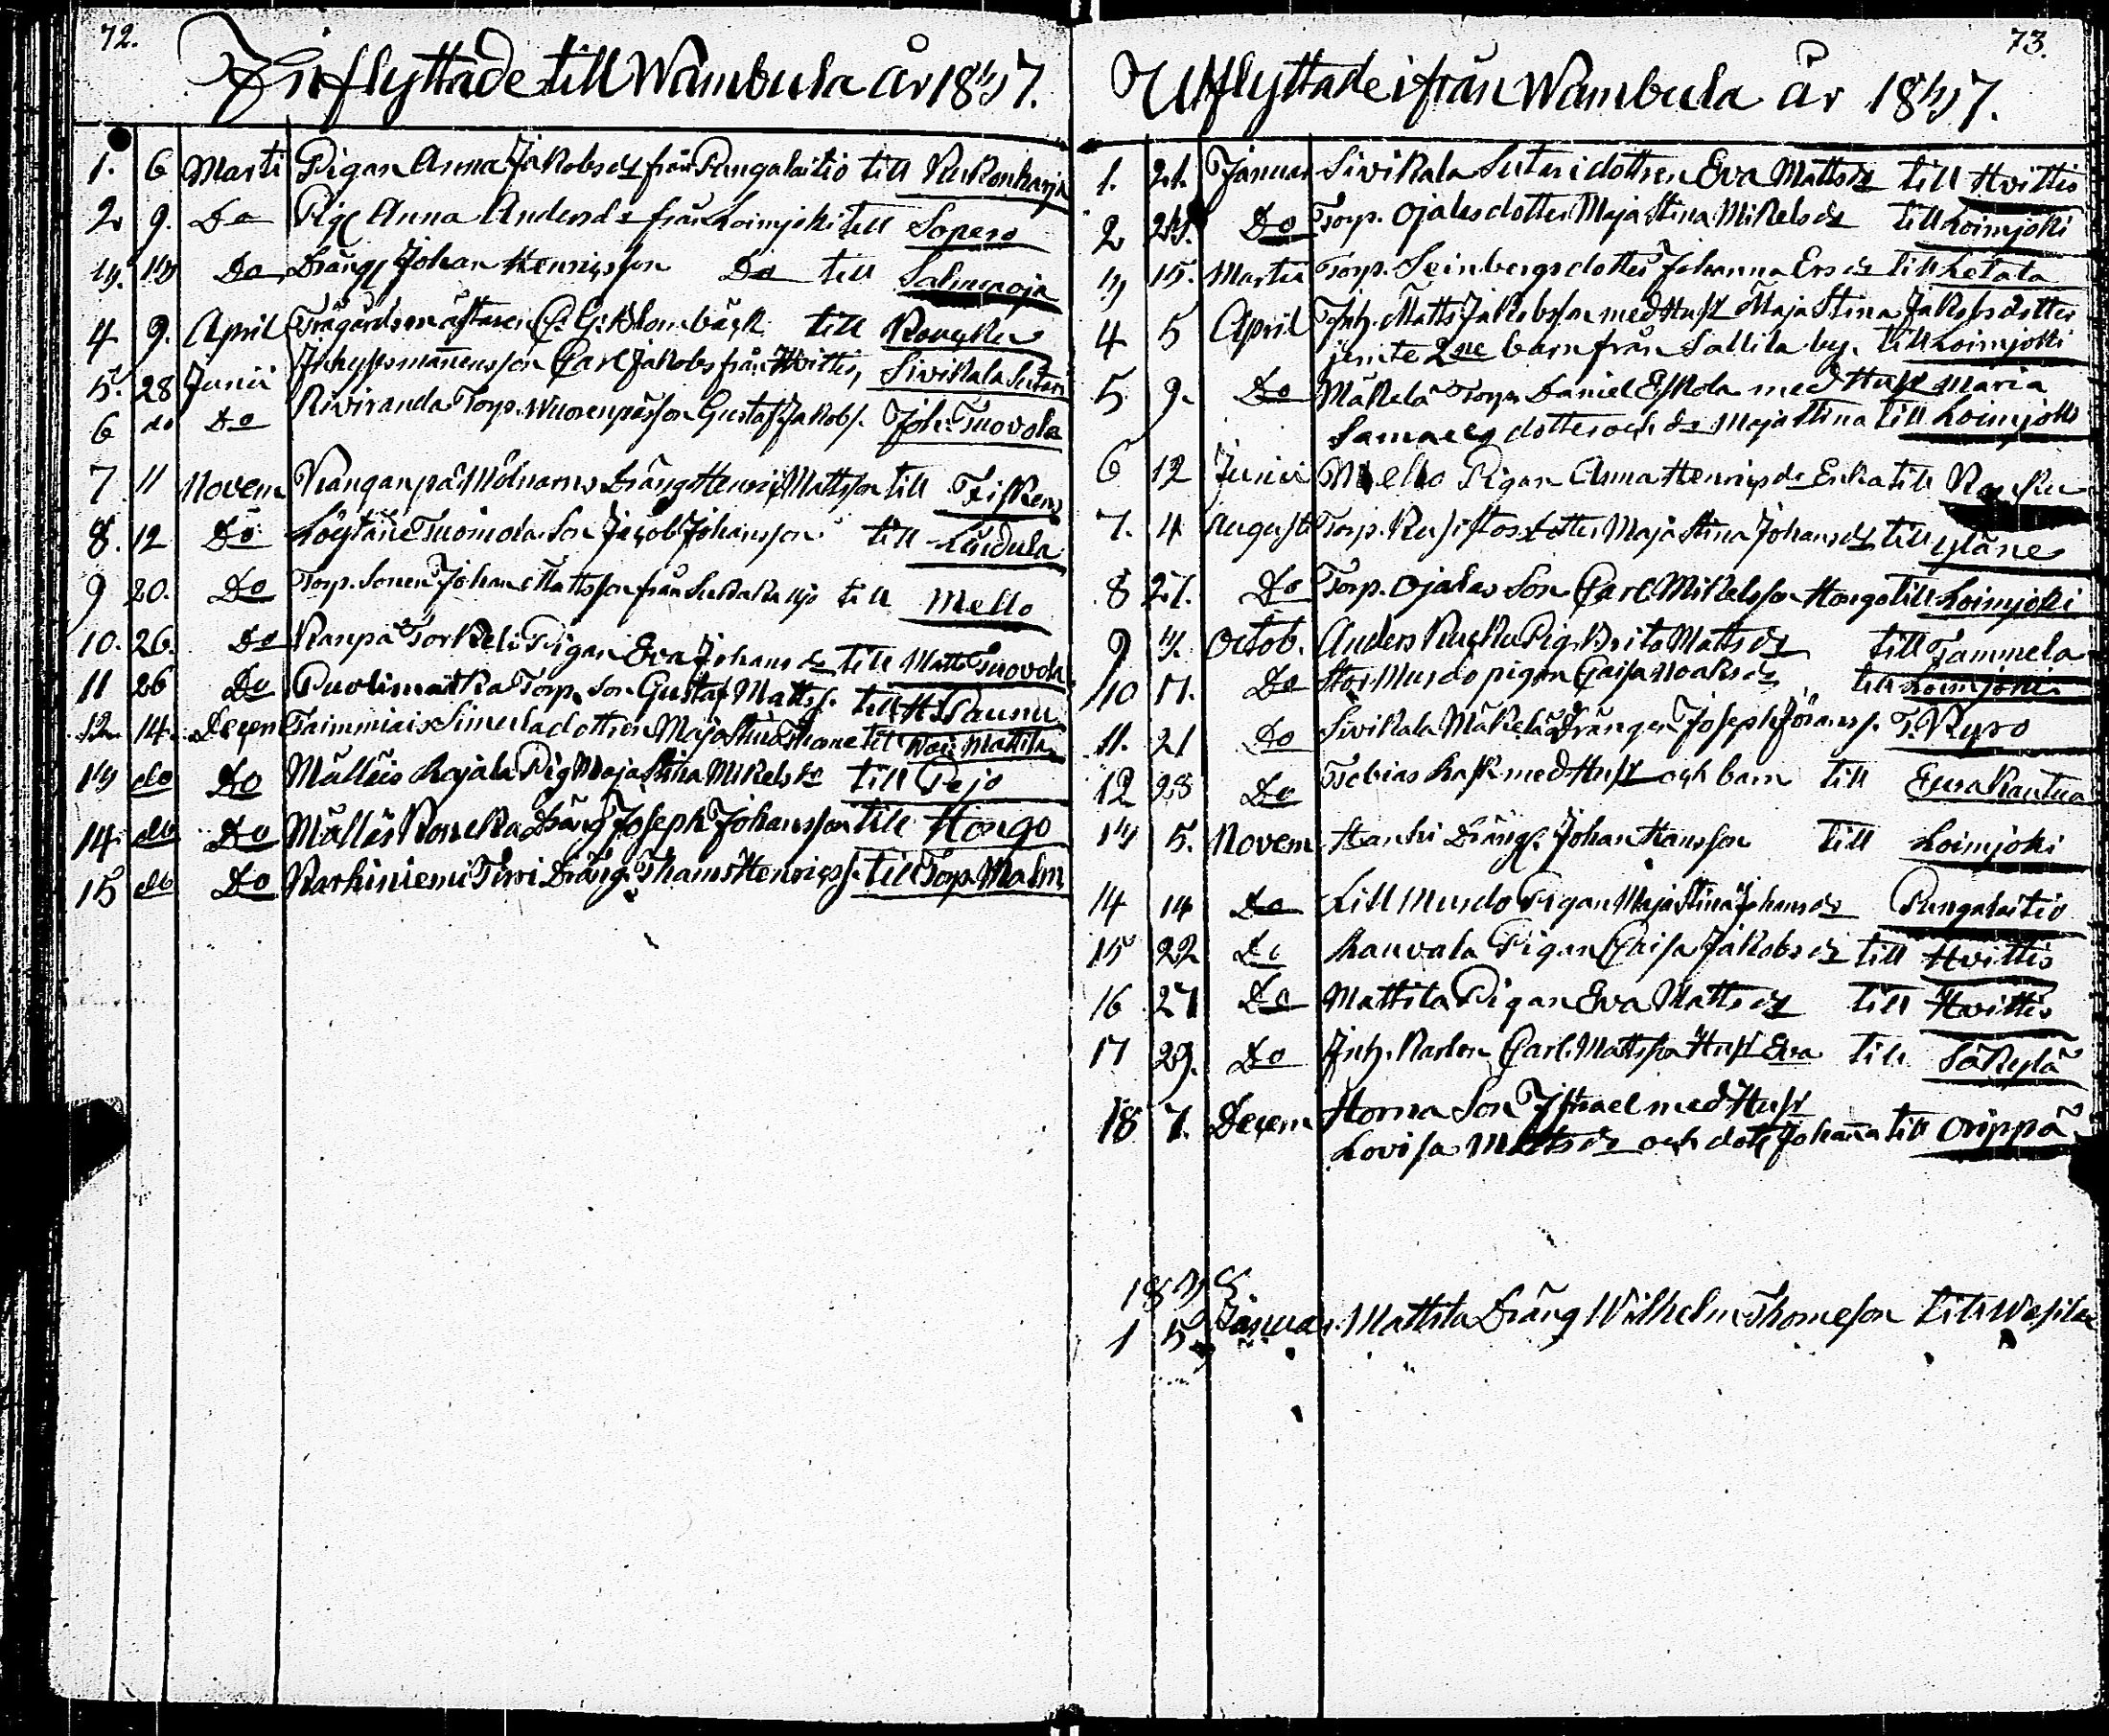 72.
Inflyttade till Wambula år 1837.
1. 6 Marti Pigan Anna Jakobsdr från Pungalaitio till Kukonharja
2 9. Do Pig. Anna Andersdr från Loimjoki till Sopero
3. 13 Do Dräng Johan Henricsson Do till Salmenoja
4 9. April Trägårdsmästaren C. G. Blombäck till Rousku
5. 28 Junii Inhysmannensson Carl Jakobs från Hvittis, Sivikala Suteri
6 do Do Riviranda Torp. Wuorenpäs son Gustaf Jakobs. Joh. Tuovola
7 11 Novem Kanganpä Mölnarns Dräng Henric Mattsson till Frisken
8. 12 Do Löytäne Tuoinola Son Jacob Johansson till Luidula
9 20. Do Torp. Sonen Johan Mattsson från till Mello
10. 26. Do Ranpä Torkeli Pigan Eva Johansdr till Matts Tuovola
11 26 Do Puolimatka Torp. Son Gustaf Matts. till H. Paunu
12 14. Decem Taimmiais Simula dottren Maja Stina Thome till Mattila
13 do Do Mälläis Rajala Pig Maja Stina Mikelsdr till Pejo
14. do Do Mälläs Kouvka Dräng Joseph Johansson till Hongo
15 do Do Karhiniemi Tirri Dräng Thomas Henricss. till Torp. Malm
73.
Utflyttade ifrån Wambula år 1837.
1. 21. Januar Sivikala Suteri dottren Eva Mattsdr till Hvittis
2 23. Do Torp. Ojalas dotter Maja Stina Mikelsdr till Loimjoki
3 15. Martii Torp. Seinbergs dotter Johanna Ersdr till Letala
4 5 April Inh. Matts Jakobsson med Hust Maja Stina Jakobsdotter
jemte 2ne barn från Sallila by. till Loimjoki
5 9. Do Mäkelä Torp. Daniel Eskola med Hust Maria
Samuels dotter och dr Maja Stina till Loimjoki
6 12 Junii Mello Pigan Anna Henricsdr Enka till
7. 4 Augusti Torp. Kusistos dotter Maja Stina Johansdr till yläne
8 27. Do Torp. Ojalas Son Carl Mikelsson Hongo till Loimjoki
9 3. Octob. Anders Rusku Pig. Brita Mattsdr till Tammela
10 17. Do Stor Mursdo pigan Caisa Noaksdr till Loimjoki
11. 21 Do Sivikala Mäkelä Drängen Joseph Jörans s. T. Kyro
12 28 Do Tobias Rask med Hust och barn till Eurakautua
13 5. Novem Hanhi Dräng. Johan Hansson till Loimjoki
14 14 Do Lill Mursdo Pigan Maja Stina Johansdr Pungalaitio
15 22 Do Rauvala Pigan Caisa Jakobsdr till Hvittis
16 27 Do Mattila Pigan Eva Mattsdr till Hvittis
17 29. Do Inh. Karlen Carl Mattsson Hust Eva till Säkylä
18 7. Decem Horna Son Isrrael med Hust
Lovisa Mattsdr och dotr Johanna till Orippä
1838
1 5 Januar. Mattila Dräng Wilhelm Thomeson till